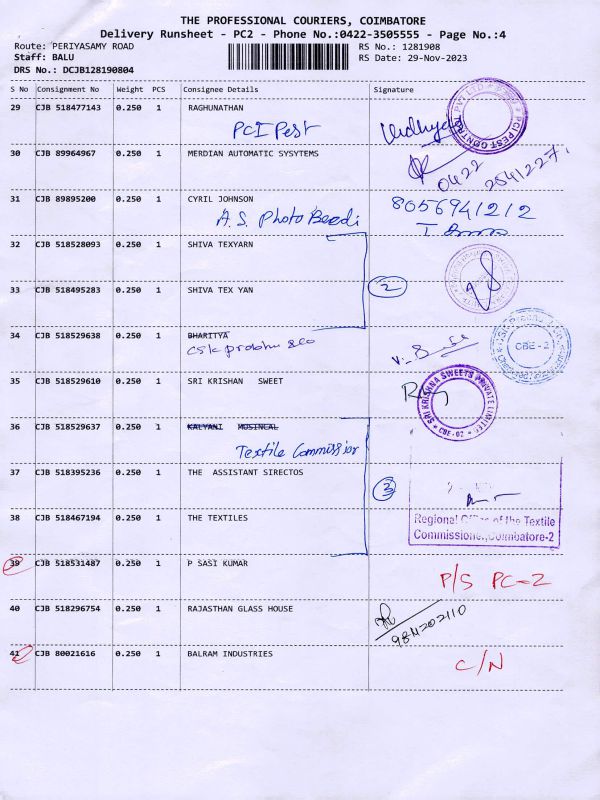 THE PROFESSIONAL COURIERS, COIMBATORE
Delivery Runsheet - PC2 - Phone No.:0422-3505555 - Page No.:4
Route: PERIYASAMY ROAD
RS No.: 1281908
Staff: BALU
RS Date: 29-Nov-2023
DRS No.: DCJB128190804
S No Consignment No Weight PCS Consignee Details Signature
29 CJB 518477143 0.250 1 RAGHUNATHAN
PCI Pest
Vidhya
PCI PEST CONTROL PVT LTD
30 CJB 89964967 0.250 1 MERDIAN AUTOMATIC SYSYTEMS
0422 2541227
31 CJB 89895200 0.250 1 CYRIL JOHNSON 8056941212
A.S. Photo
32 CJB 518528093 0.250 1 SHIVA TEXYARN
2
33 CJB 518495283 0.250 1 SHIVA TEX YAN
34 CJB 518529638 0.250 1 BHARITYA
csk prabhu & co
CBE - 2
35 CJB 518529610 0.250 1 SRI KRISHAN SWEET
SRI KRISHNA SWEETS PRIVATE LIMITED
CBE-02
36 CJB 518529637 0.250 1 KALYANI MUSINCAL
Textile Commissior
37 CJB 518395236 0.250 1 THE ASSISTANT SIRECTOS
3
38 CJB 518467194 0.250 1 THE TEXTILES
Regional Office of the Textile
Commissioner, Coimbatore-2
39 CJB 518531487 0.250 1 P SASI KUMAR
P/S PC-2
40 CJB 518296754 0.250 1 RAJASTHAN GLASS HOUSE
984202110
41 CJB 80021616 0.250 1 BALRAM INDUSTRIES
C/N